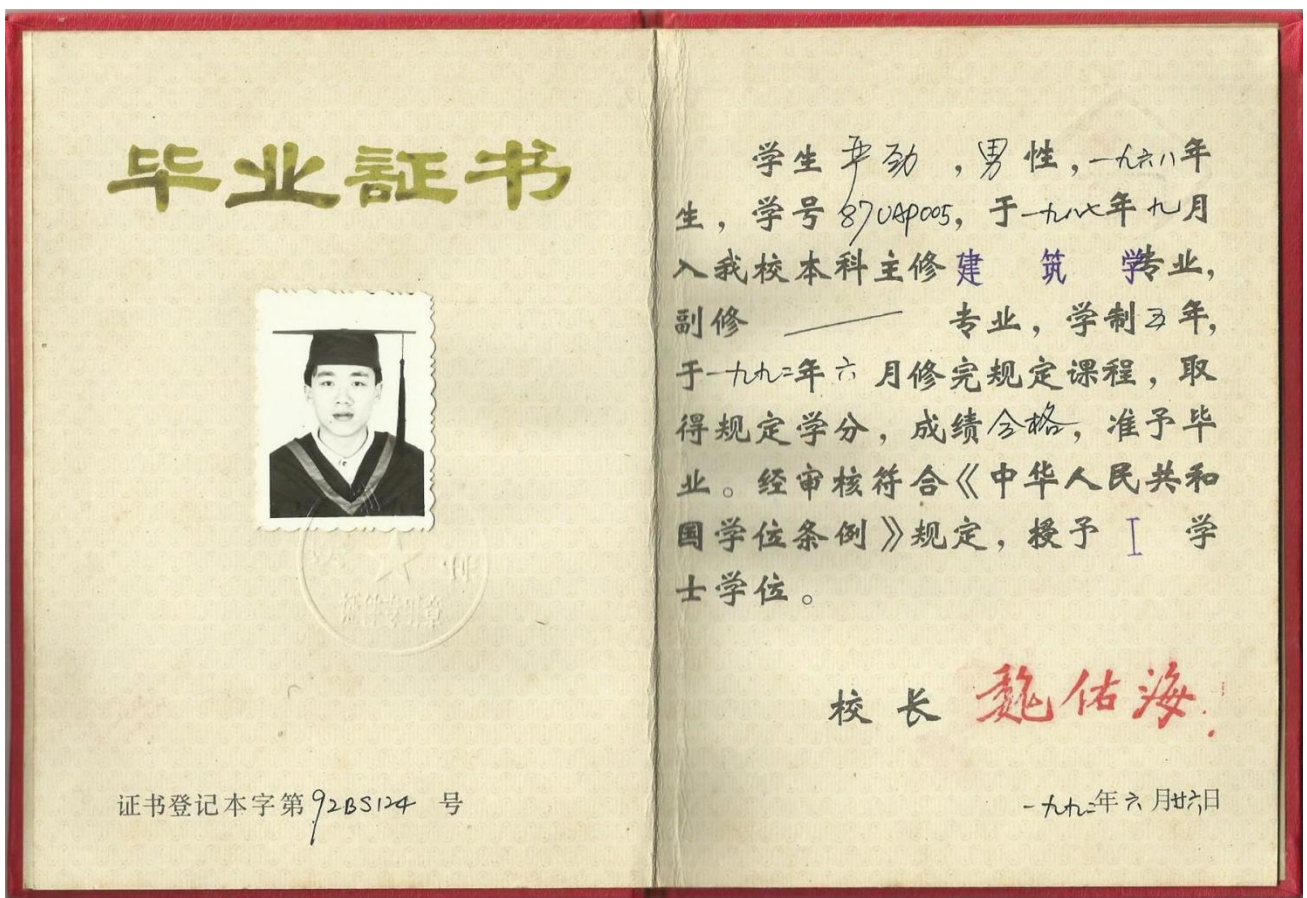 毕业証书
证书登记本字第92BS124 号
学生 劲 ,男性,一九六八年
生,学号87UAP005,于一九八七年九月
入我校本科主修建 筑 学专业,
副修 —— 专业,学制五年,
于一九九二年六 月修完规定课程,取
得规定学分,成绩合格,准予毕
业。经审核符合《中华人民共和
国学位条例》规定,授予 工 学
士学位。
校 长 魏佑海
一九九二年六月廿六日